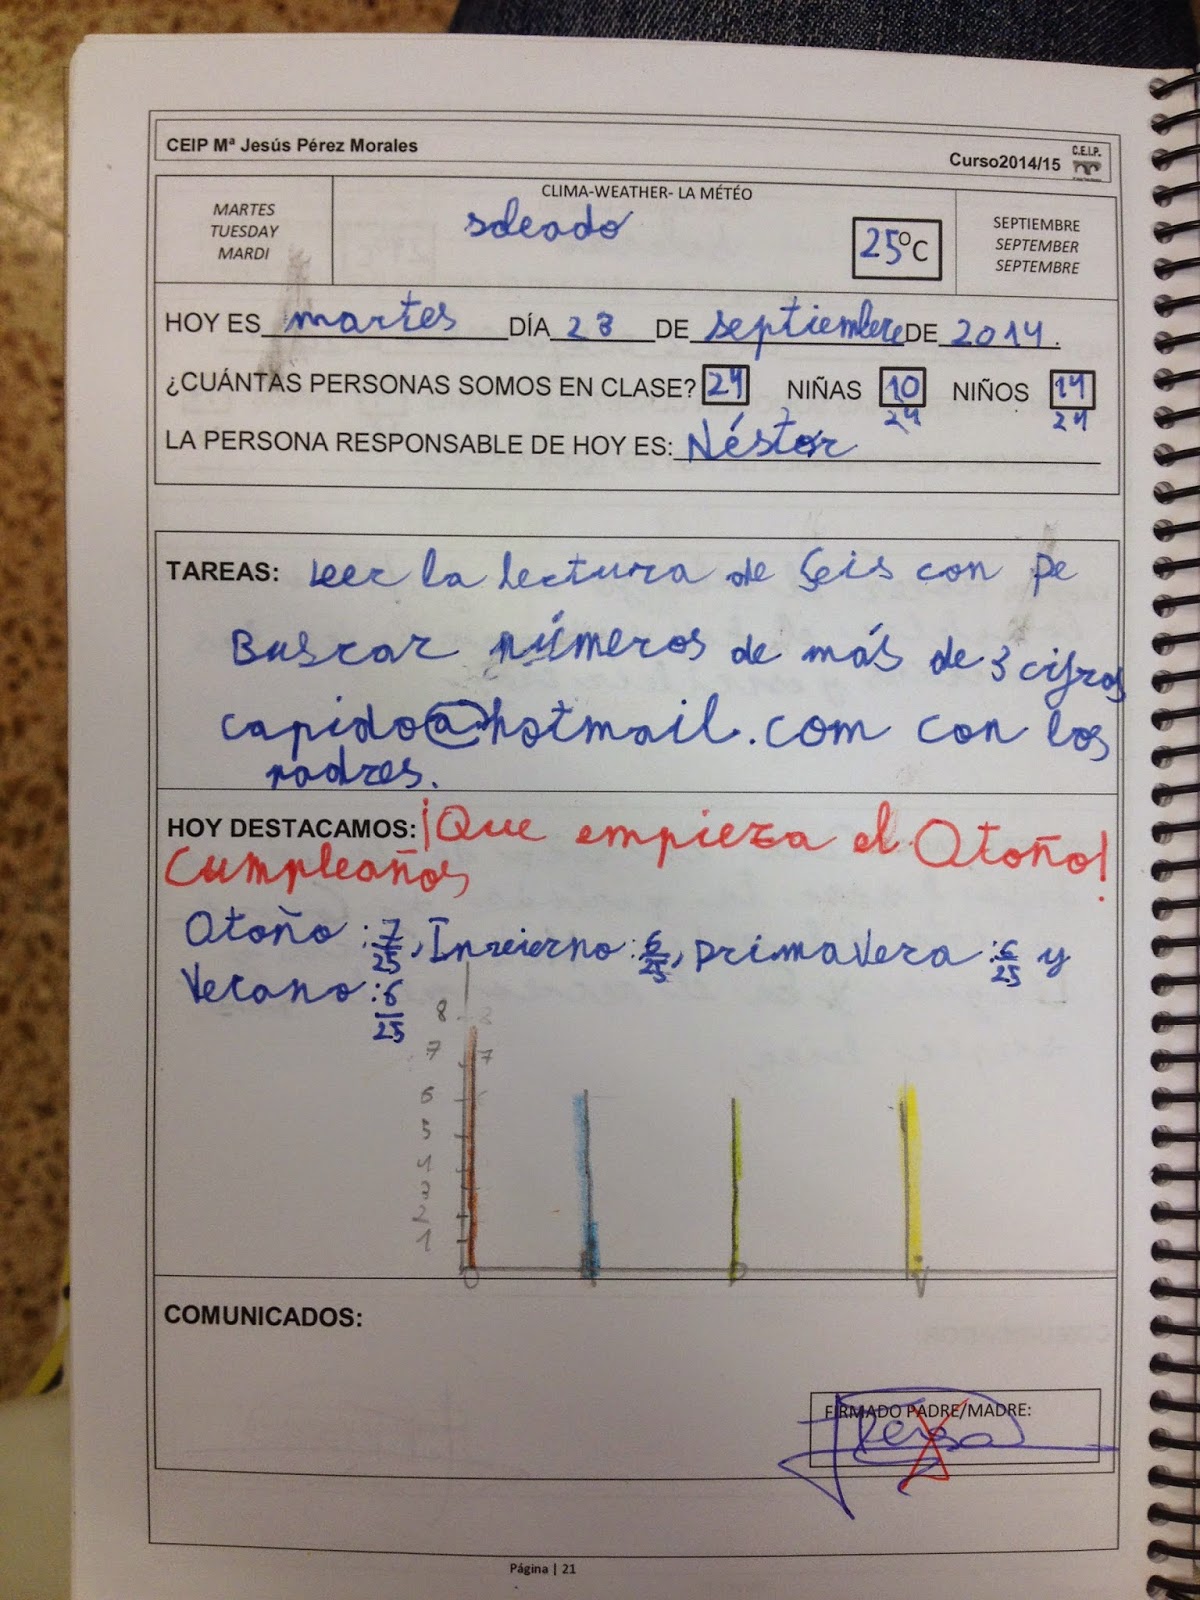 CEIP Mª Jesús Pérez Morales
Curso2014/15
C.E.I.P.
MARTES
TUESDAY
MARDI
CLIMA-WEATHER- LA MÉTÉO
soleado
25ºC
SEPTIEMBRE
SEPTEMBER
SEPTEMBRE
HOY ES martes DÍA 23 DE septiembre DE 2014.
¿CUÁNTAS PERSONAS SOMOS EN CLASE? 24 NIÑAS 10 NIÑOS 14
24 24
LA PERSONA RESPONSABLE DE HOY ES: Néstor
TAREAS: Leer la lectura de Seis con pe
Buscar números de más de 3 cifras
capido@hotmail.com con los
padres.
HOY DESTACAMOS: ¡Que empieza el Otoño!
Cumpleaños
Otoño: 7/25, Invierno: 6/25, primavera: 6/25 y
Verano: 6/25
8
7 7
6
5
4
3
2
1
O P V
COMUNICADOS:
FIRMADO PADRE/MADRE:
Página | 21